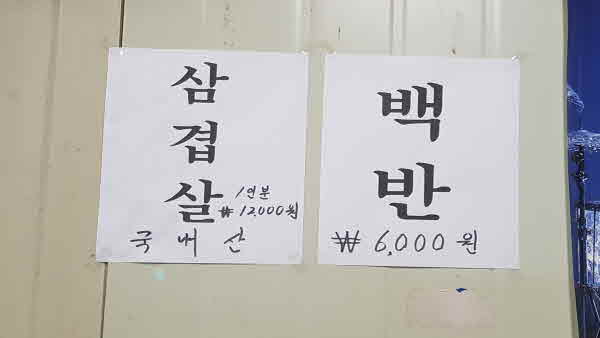 삼
겹
살
1인분
₩ 12,000원
국내산
백
반
₩ 6,000원